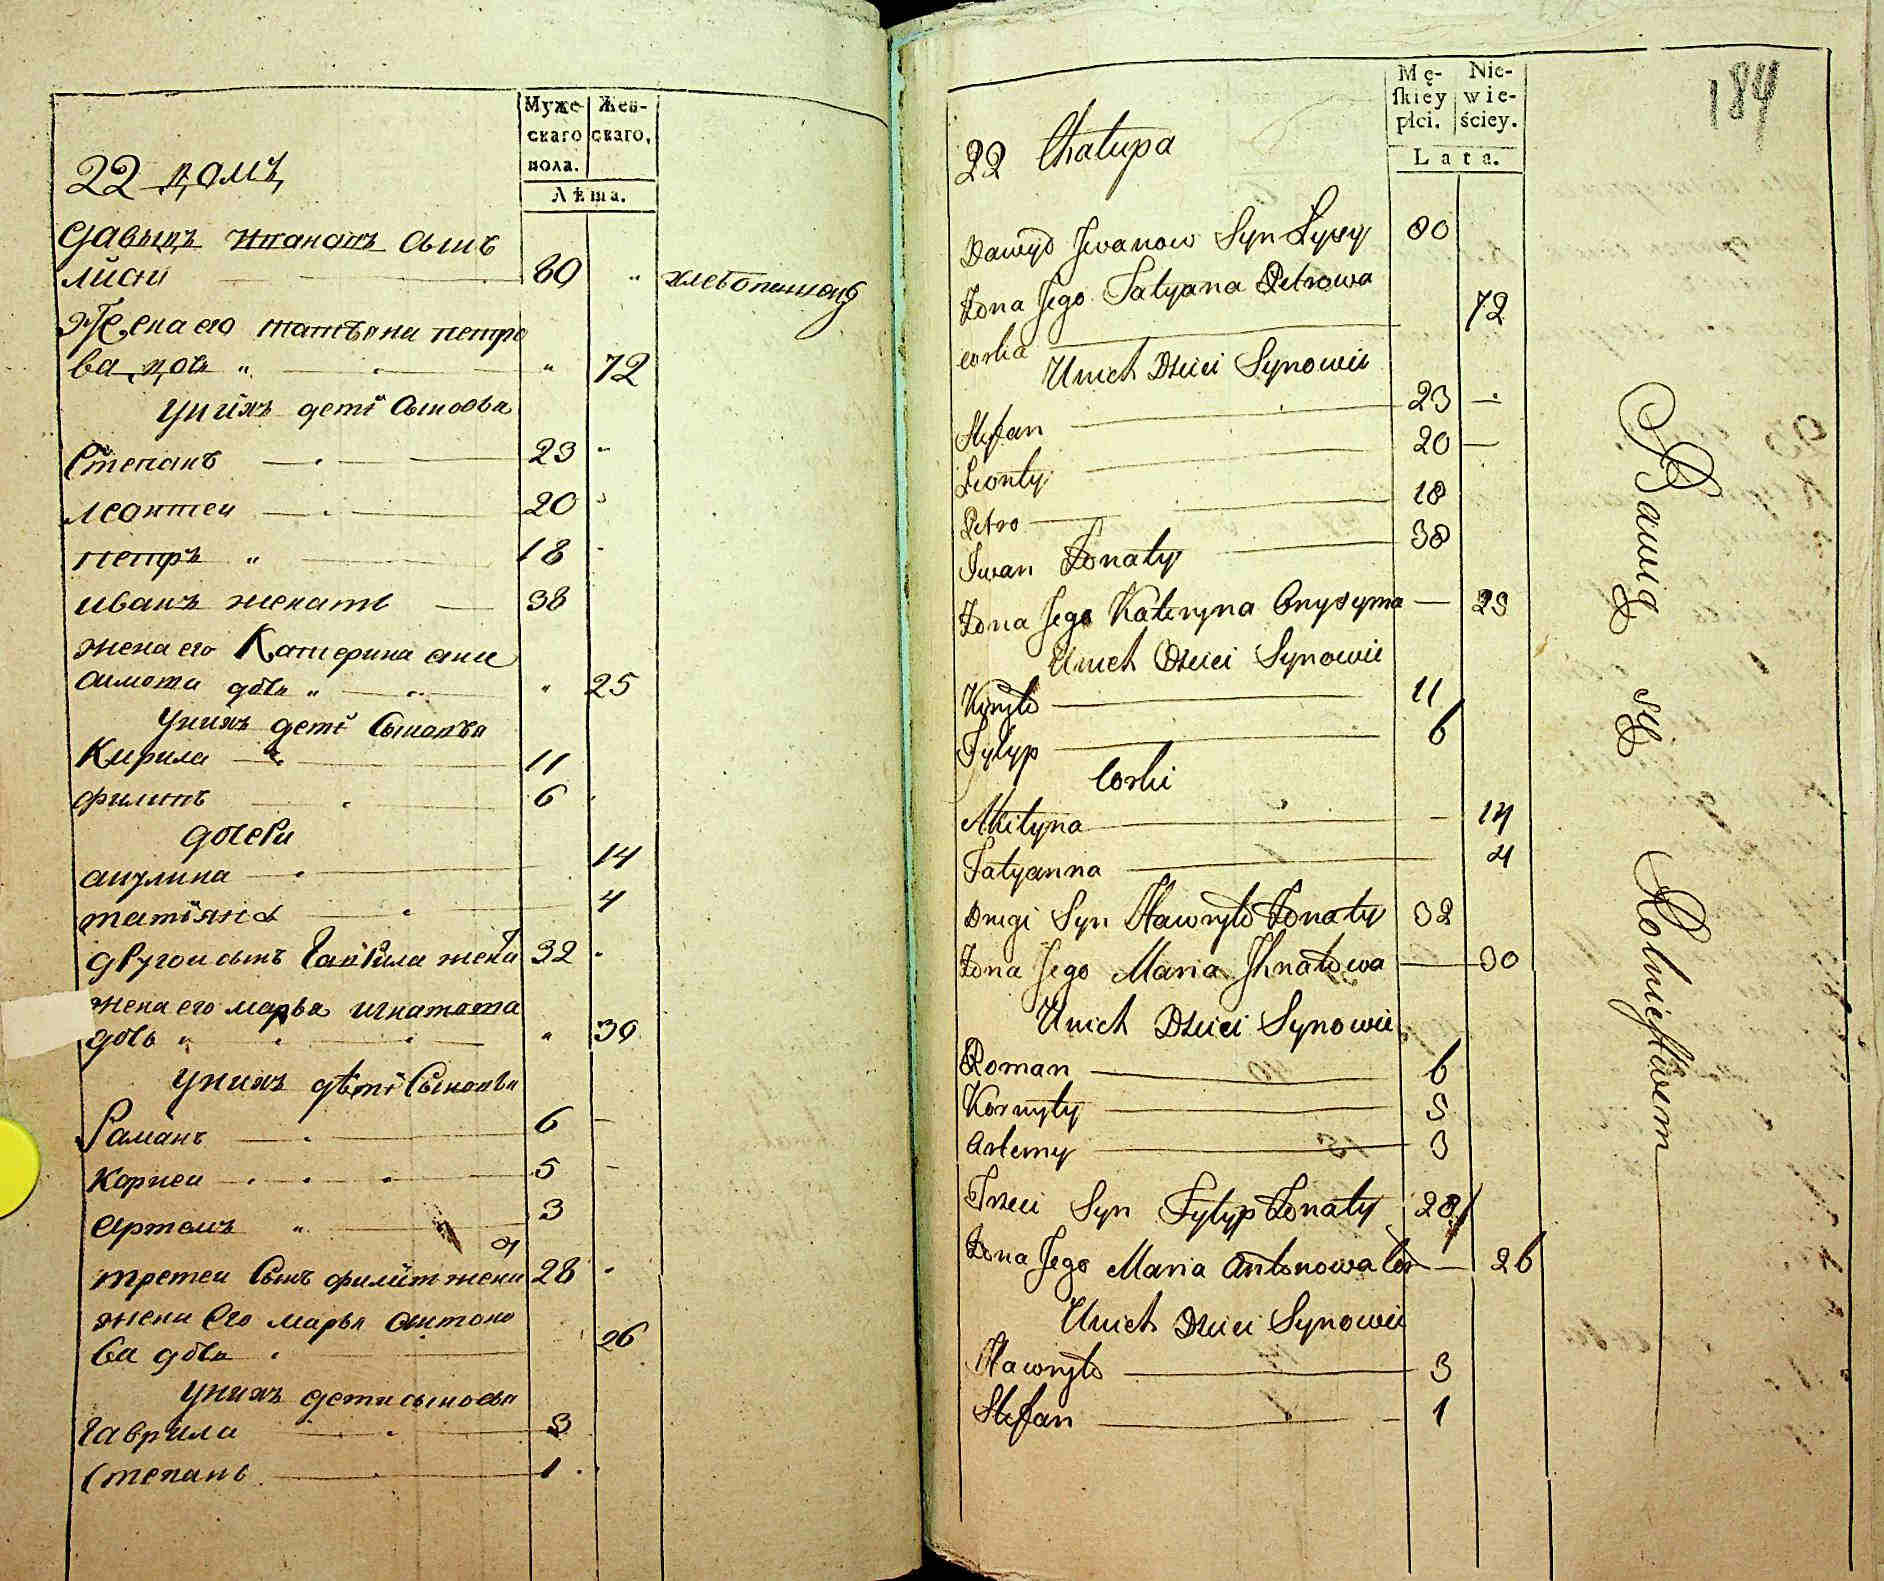 Муже-
скаго
пола.
Жен-
скаго.
Лѣта.
22 домъ
Давыдъ Ивановъ сынъ
лисы 80 " хлебопашецъ
Жена его татьяна петро
ва доч " " 72
у нихъ дети Сыновья
Степанъ 23 "
леонтей 20
петръ " 18
иванъ женатъ 38
жена его Катерина ани
симова дочь " " 25
у нихъ дети Сыновья
Кирила 11
филипъ 6
дочери
акулина 14
татіяна 4
другои сынъ Гаврила женатъ 32
жена его марья игнатова
дочь " " 30
у нихъ дѣти Сыновья
Раманъ 6
корнеи 5
артемъ " 3
третеи Сынъ филипъ женатъ 28
жена Его марья антоно
ва дочь 26
у нихъ дети сыновья
гаврила 3
степанъ 1
184
Mę-
skiey
płci.
Nie-
wie-
ściey.
Lata.
22 Chałupa
Dawyd Jwanow Syn Łysy 80
Żona Jego Tatyana Petrowa
corka 72
Unich Dzieci Synowie
Stefan 23
Leonty 20
Petro 18
Jwan Żonaty 38
Żona Jego Kateryna Onysyma 25
Unich Dzieci Synowie
Kiryło 11
Fylyp 6
Corki
Akilyna 14
Tatyanna 4
Drugi Syn Hawryło Żonaty 32
Żona Jego Maria Jhnatowa 30
Unich Dzieci Synowie
Roman 6
Kornyły 5
Artemy 3
Trzeci Syn Fylyp Żonaty 28
Żona Jego Maria Antonowa Cor 26
Unich Dzieci Synowie
Hawryło 3
Stefan 1
Bawią się Rolnictwem